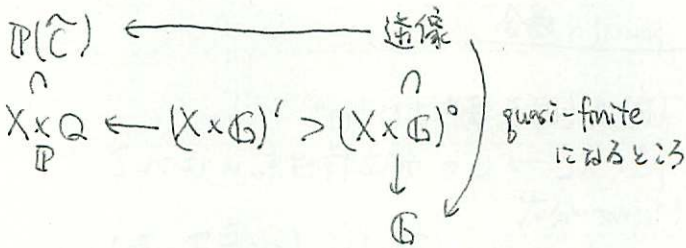 ℙ(C̃) ← 逆像
∩ ∩
X×Q ← (X×𝔾)' > (X×𝔾)° quasi-finite
ℙ ↓ になるところ
𝔾